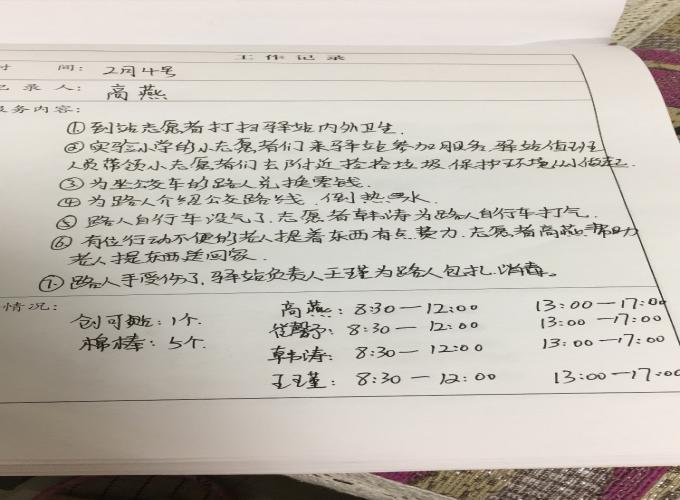 工作记录
时 间： 2月4号
记录人： 高燕
服务内容：
①到站志愿者打扫驿站内外卫生.
②实验小学的小志愿者们来驿站参加服务.驿站值班
人员带领小志愿者们去附近捡捡垃圾.保护环境从小做起.
③为坐公交车的路人兑换零钱.
④为路人介绍公交路线.倒热水.
⑤路人自行车没气了.志愿者韩涛为路人自行车打气.
⑥有位行动不便的老人提着东西有点费力.志愿者高燕帮助
老人提东西送回家.
⑦路人手受伤了.驿站负责人王瑾为路人包扎.消毒。
情况：
创可贴：1个.
棉棒：5个.
高燕：8:30—12:00 13:00—17:00
馨予：8:30—12:00 13:00—17:00
韩涛：8:30—12:00 13:00—17:00
王瑾：8:30—12:00 13:00—17:00